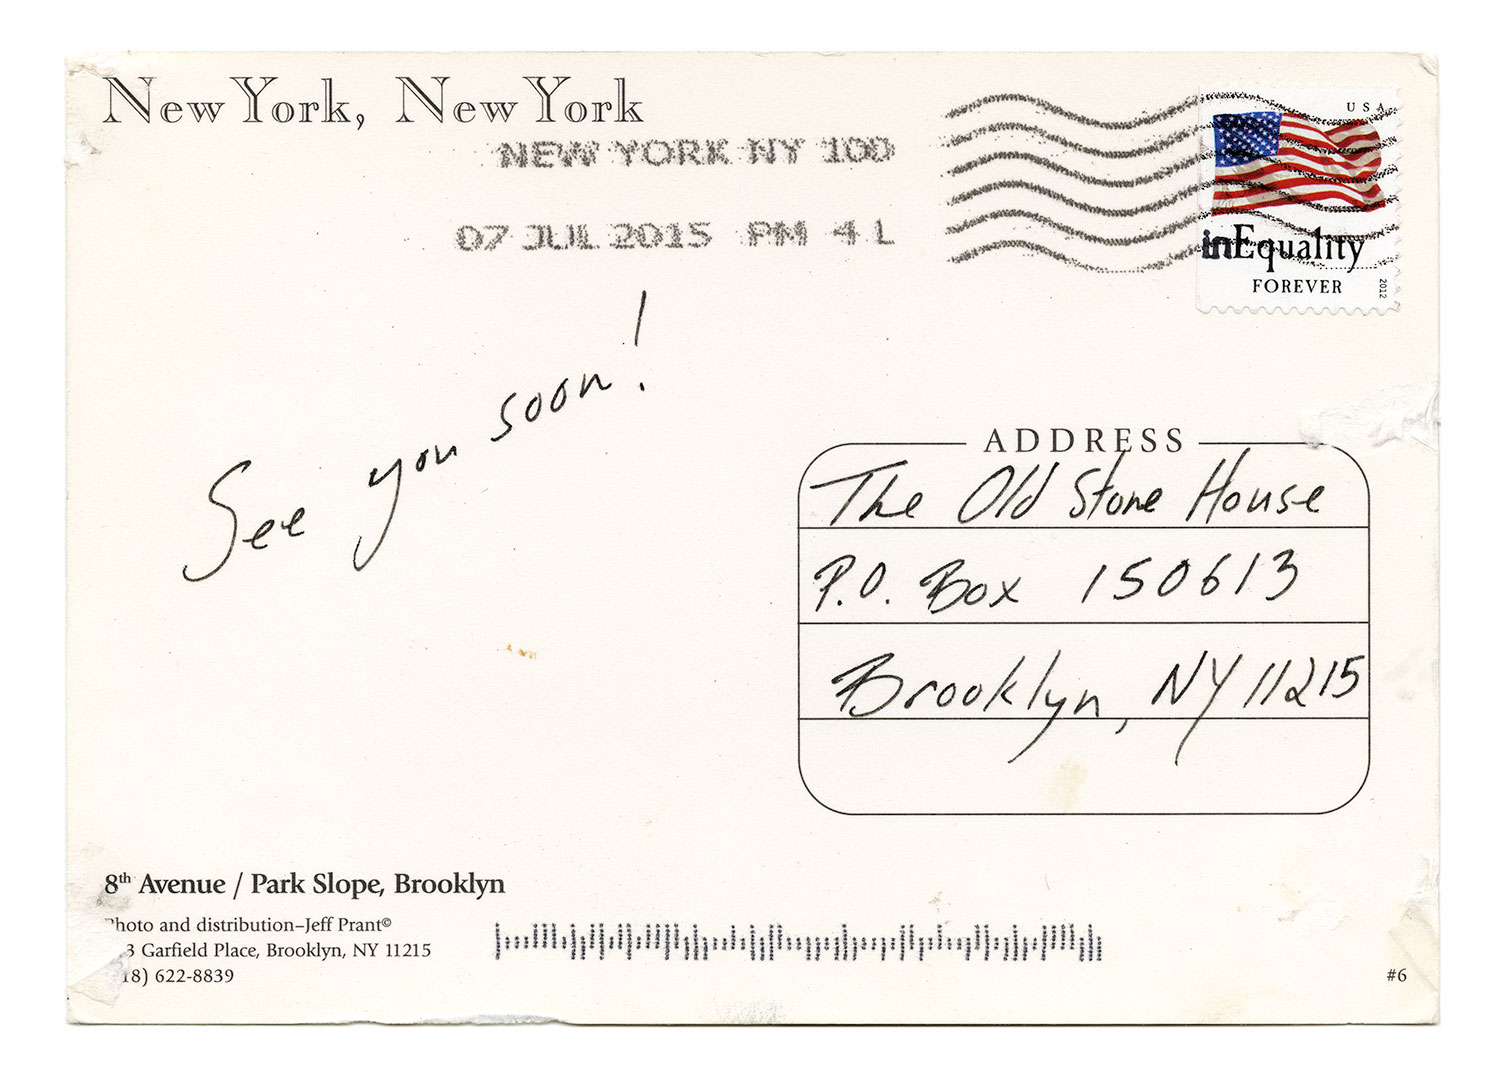 New York, New York
NEW YORK NY 100
07 JUL 2015 PM 4 L
USA
inEquality
FOREVER
2012
See you soon!
ADDRESS
The Old Stone House
P.O. Box 150613
Brooklyn, NY 11215
8th Avenue / Park Slope, Brooklyn
Photo and distribution–Jeff Prant©
3 Garfield Place, Brooklyn, NY 11215
18) 622-8839
#6